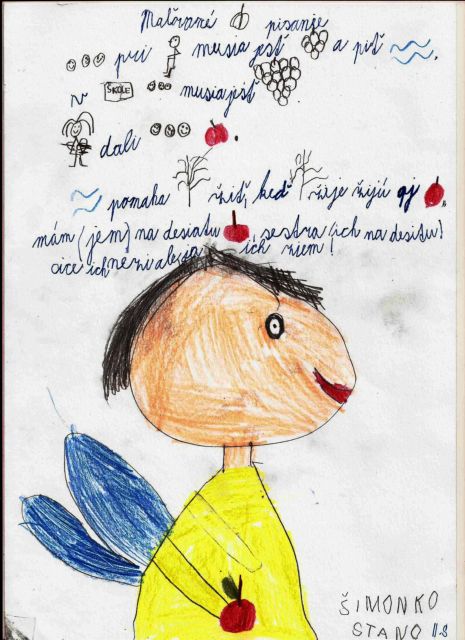 Maľované písanie
pri musia jesť a piť
v ŠKOLE musia jesť
dali .
pomaha žiť, keď žije žijú aj
mám (jem) na desiatu , sestra ich na desitu!
ich ich
ŠIMONKO
STANO